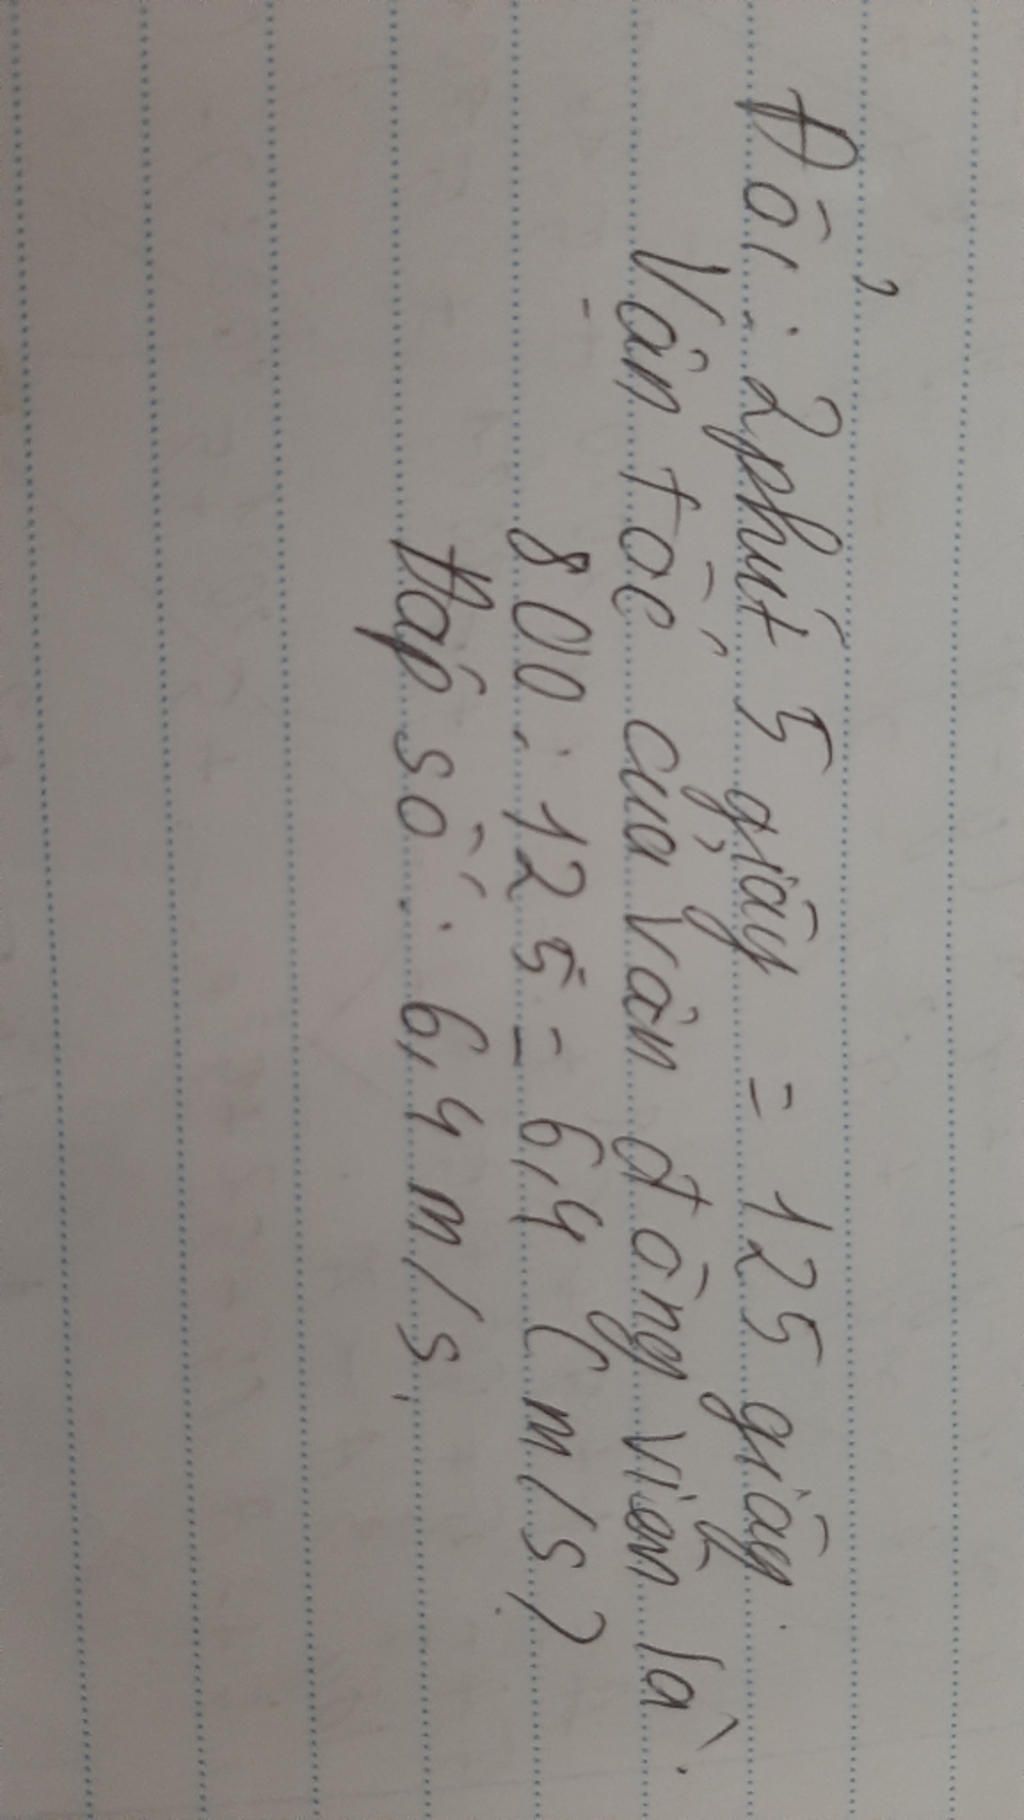 Đổi : 2 phút 5 giây = 125 giây.
Vân tốc của vân động viên là :
800 : 125 = 6,4 ( m / s )
Đáp số : 6,4 m / s.